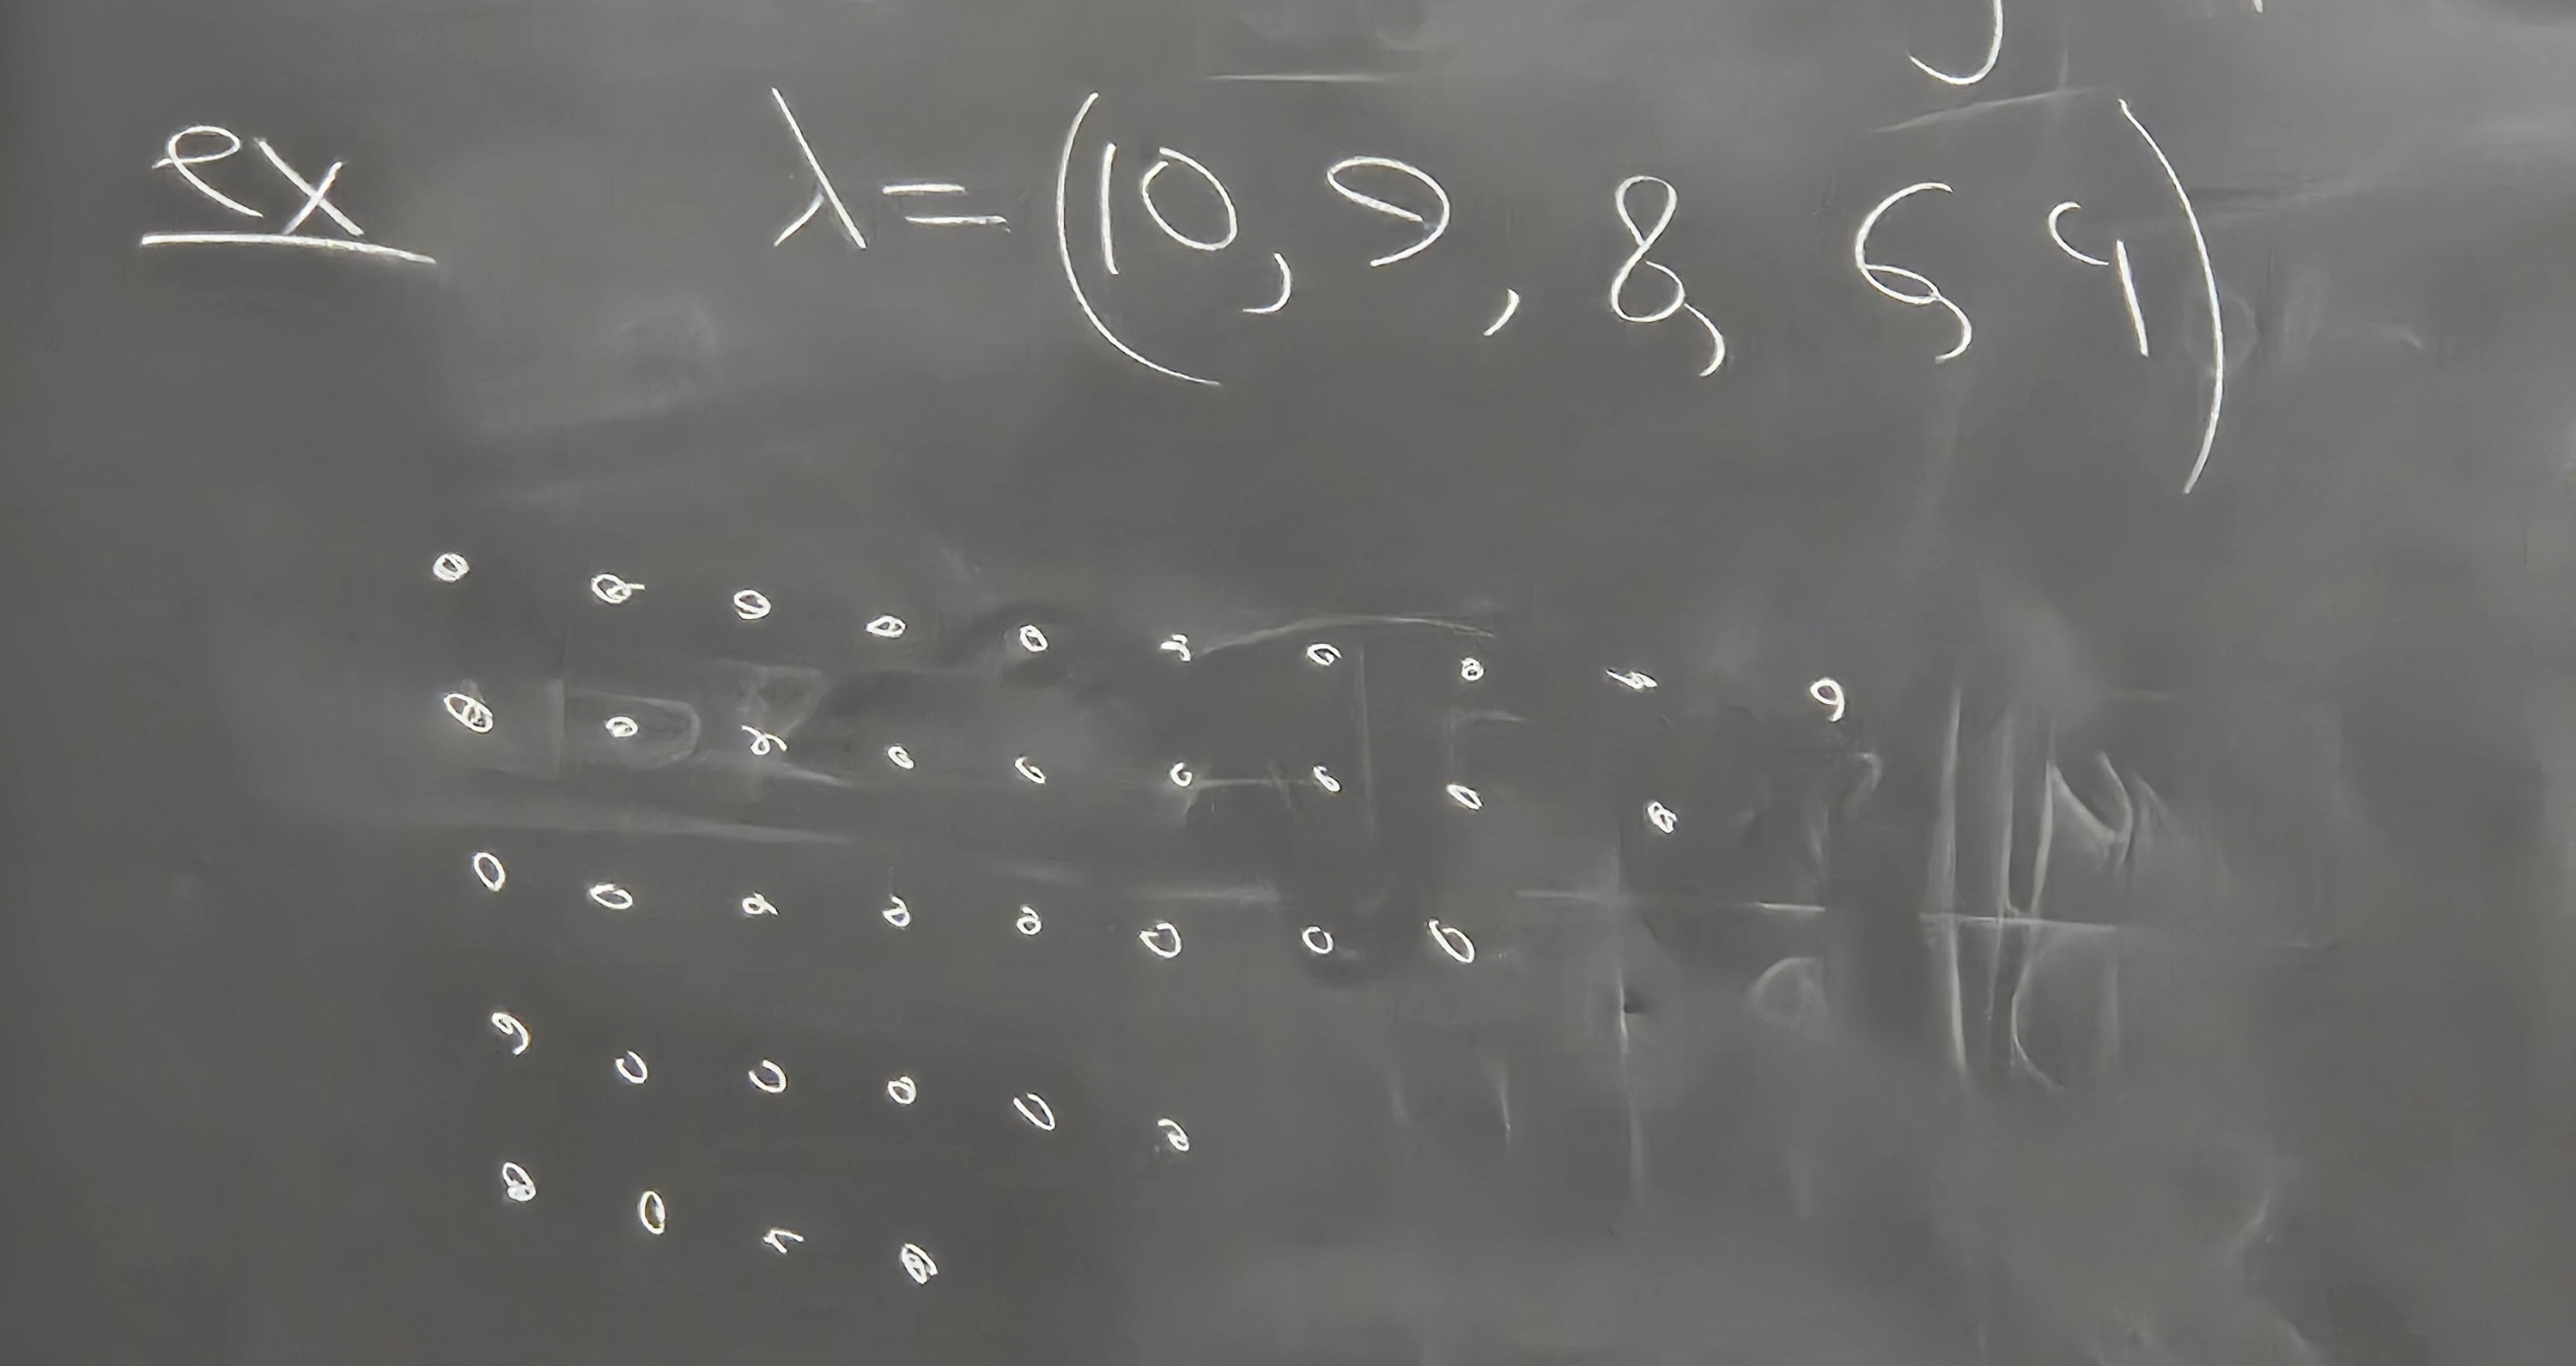 ex λ = (10, 9, 8, 6, 4)